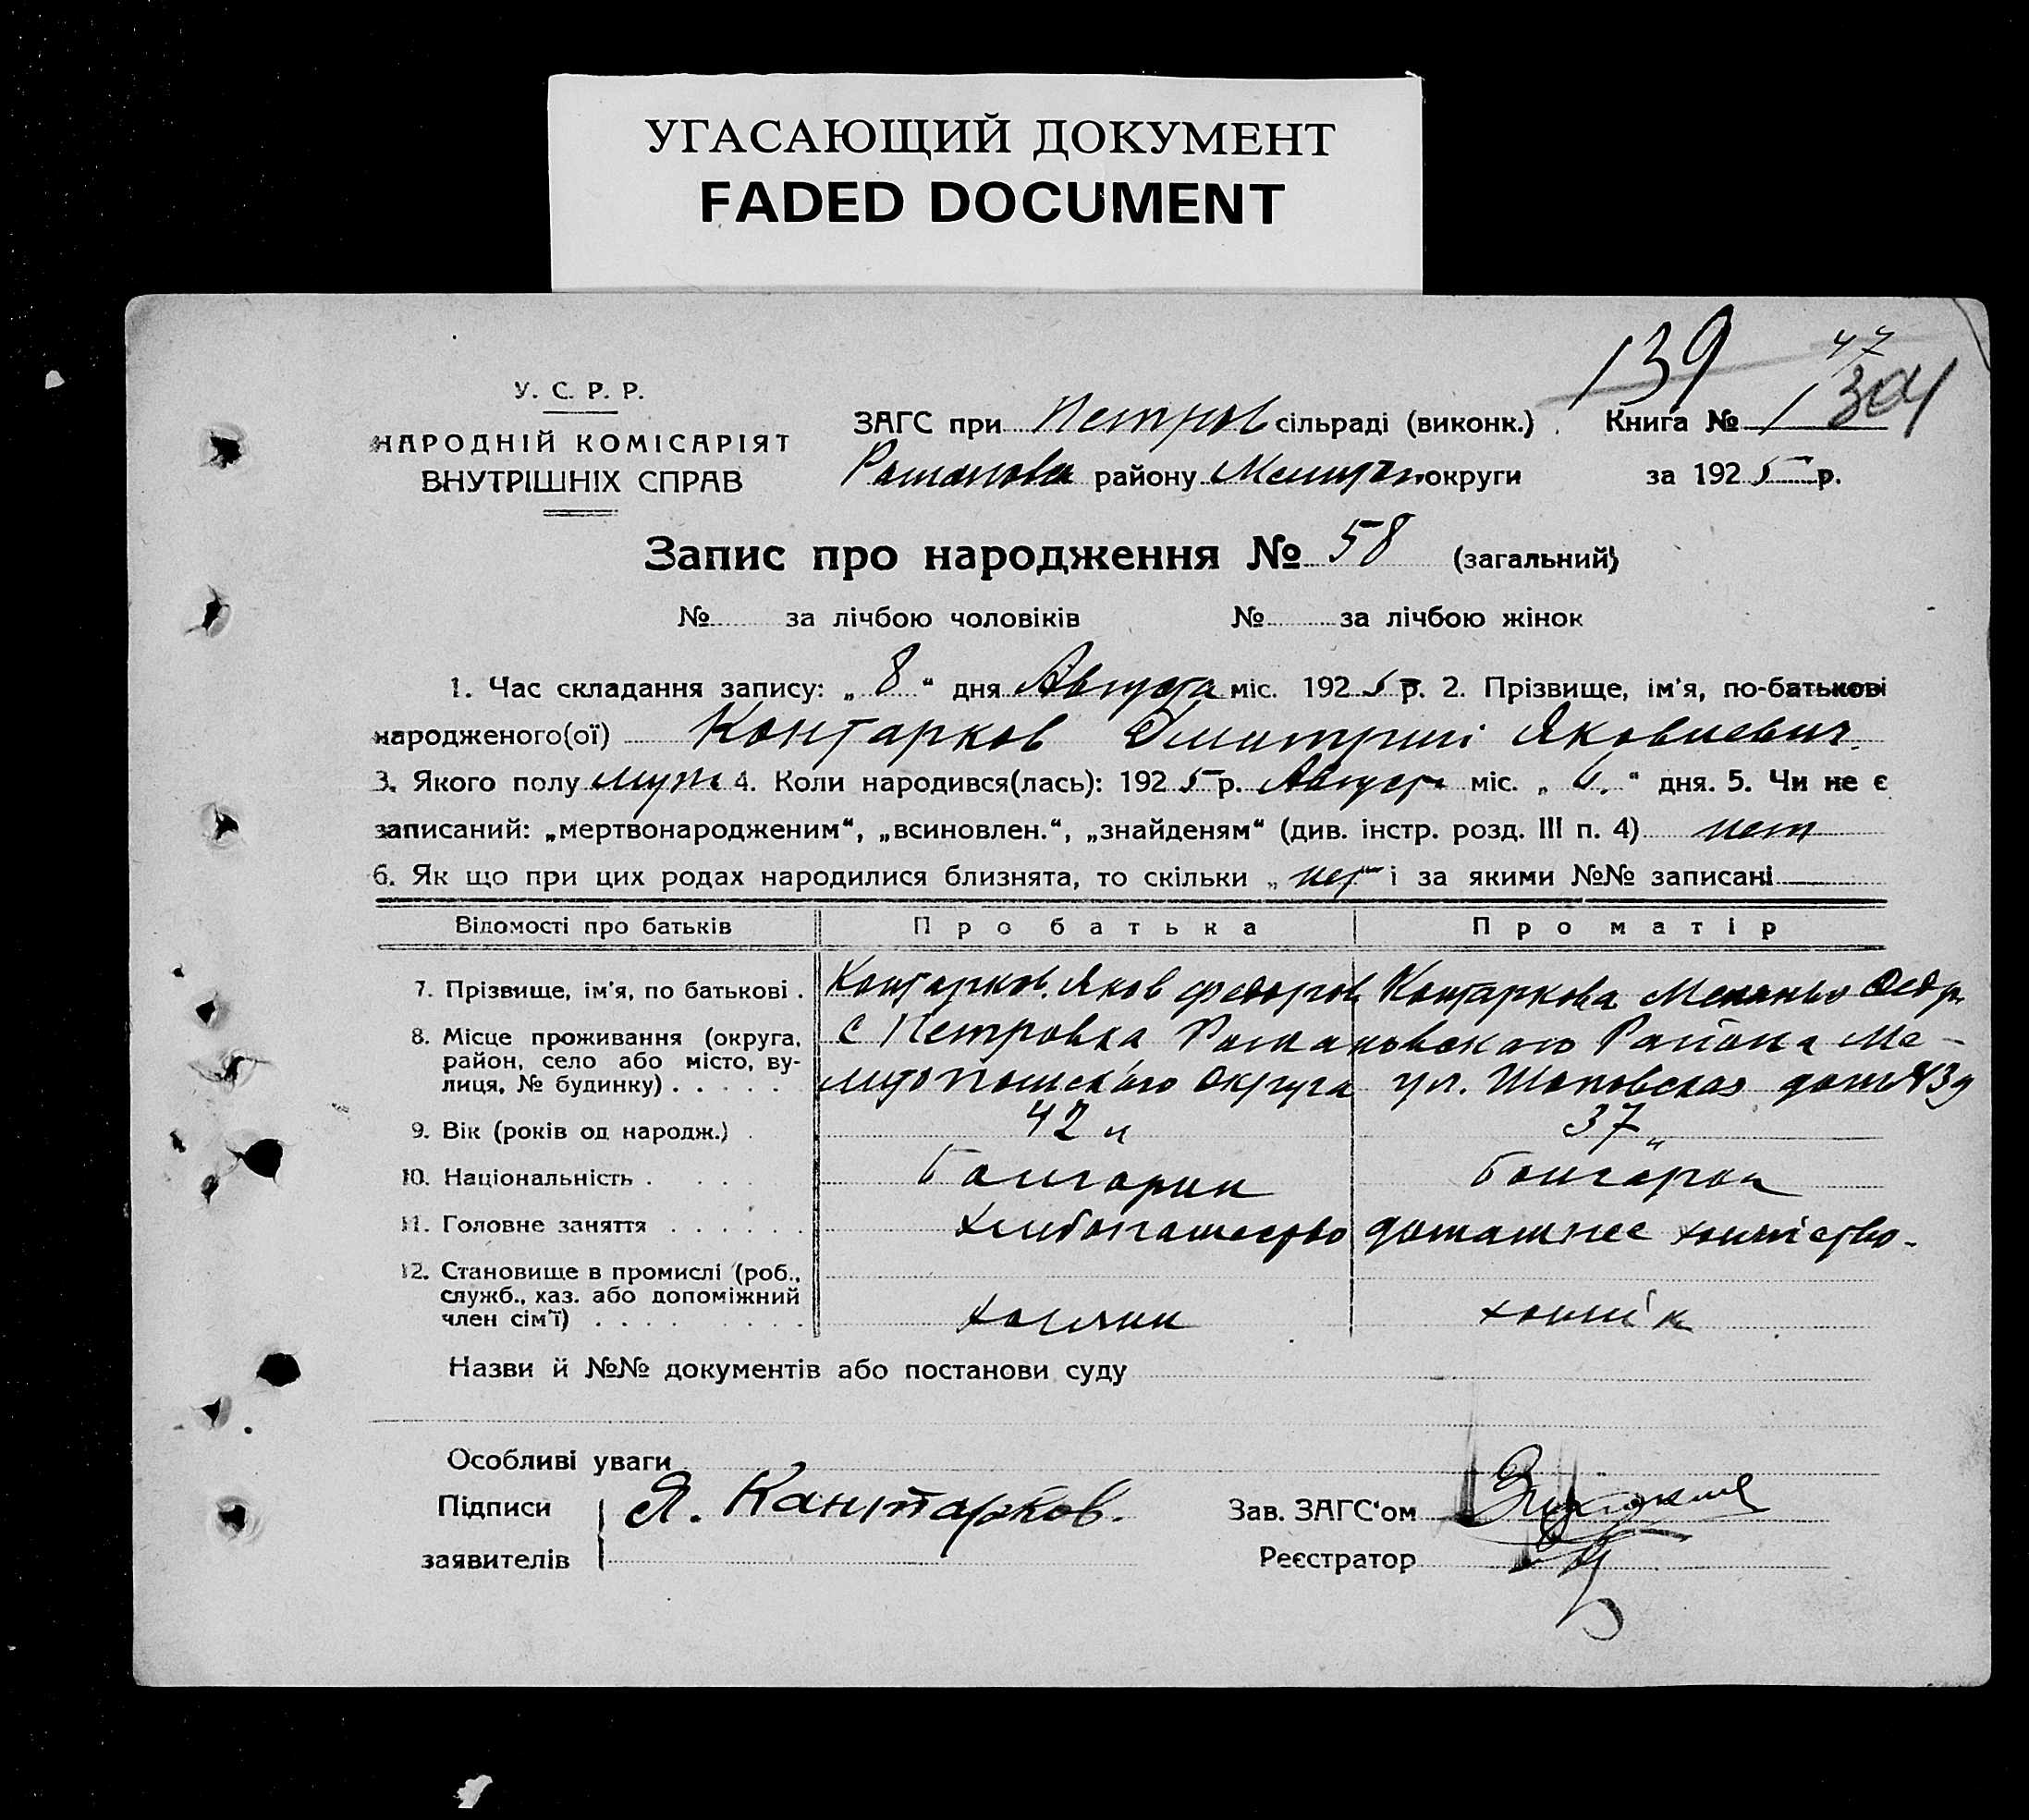 УГАСАЮЩИЙ ДОКУМЕНТ
FADED DOCUMENT
139
47
304
У. С. Р. Р.
НАРОДНІЙ КОМІСАРІЯТ
ВНУТРІШНІХ СПРАВ
ЗАГС при Петров сільраді (виконк.). Книга № 1
Романовск району Мелитоп. округи за 1925 р.
Запис про народження № 58 (загальний)
№ за лічбою чоловіків № за лічбою жінок
1. Час складання запису: „ 8 “ дня Августа міс. 1925 р. 2. Прізвище, ім'я, по-батькові
народженого(ої) Контарков Дмитрий Яковлевич.
3. Якого полу муж. 4. Коли народився(лась): 1925 р. Август міс. „ 6. “ дня. 5. Чи не є
записаний: „мертвонародженим“, „всиновлен.“, „знайденям“ (див. інстр. розд. III п. 4) нет
6. Як що при цих родах народилися близнята, то скільки „ нет і за якими №№ записані
Відомості про батьків Про батька Про матір
7. Прізвище, ім'я, по батькові . Контарков. Яков Федоров Контаркова Федр.
8. Місце проживання (округа, с Петровка Романовского Района Ме-
район, село або місто, ву-
лиця, № будинку) . . . . . литопольского Округа ул. дом № 39
9. Вік (років од народж.) . 42 л 37 „
10. Національність . . . . Болгарин болгарка
11. Головне заняття . . . . . . хлебопашество домашнее хозяйство.
12. Становище в промислі (роб.,
служб., хаз. або допоміжний
член сім'ї) . . . . . . . . хозяин
Назви й №№ документів або постанови суду
Особливі уваги
Підписи Я. Кантарков. Зав. ЗАГС'ом
заявителів Реєстратор